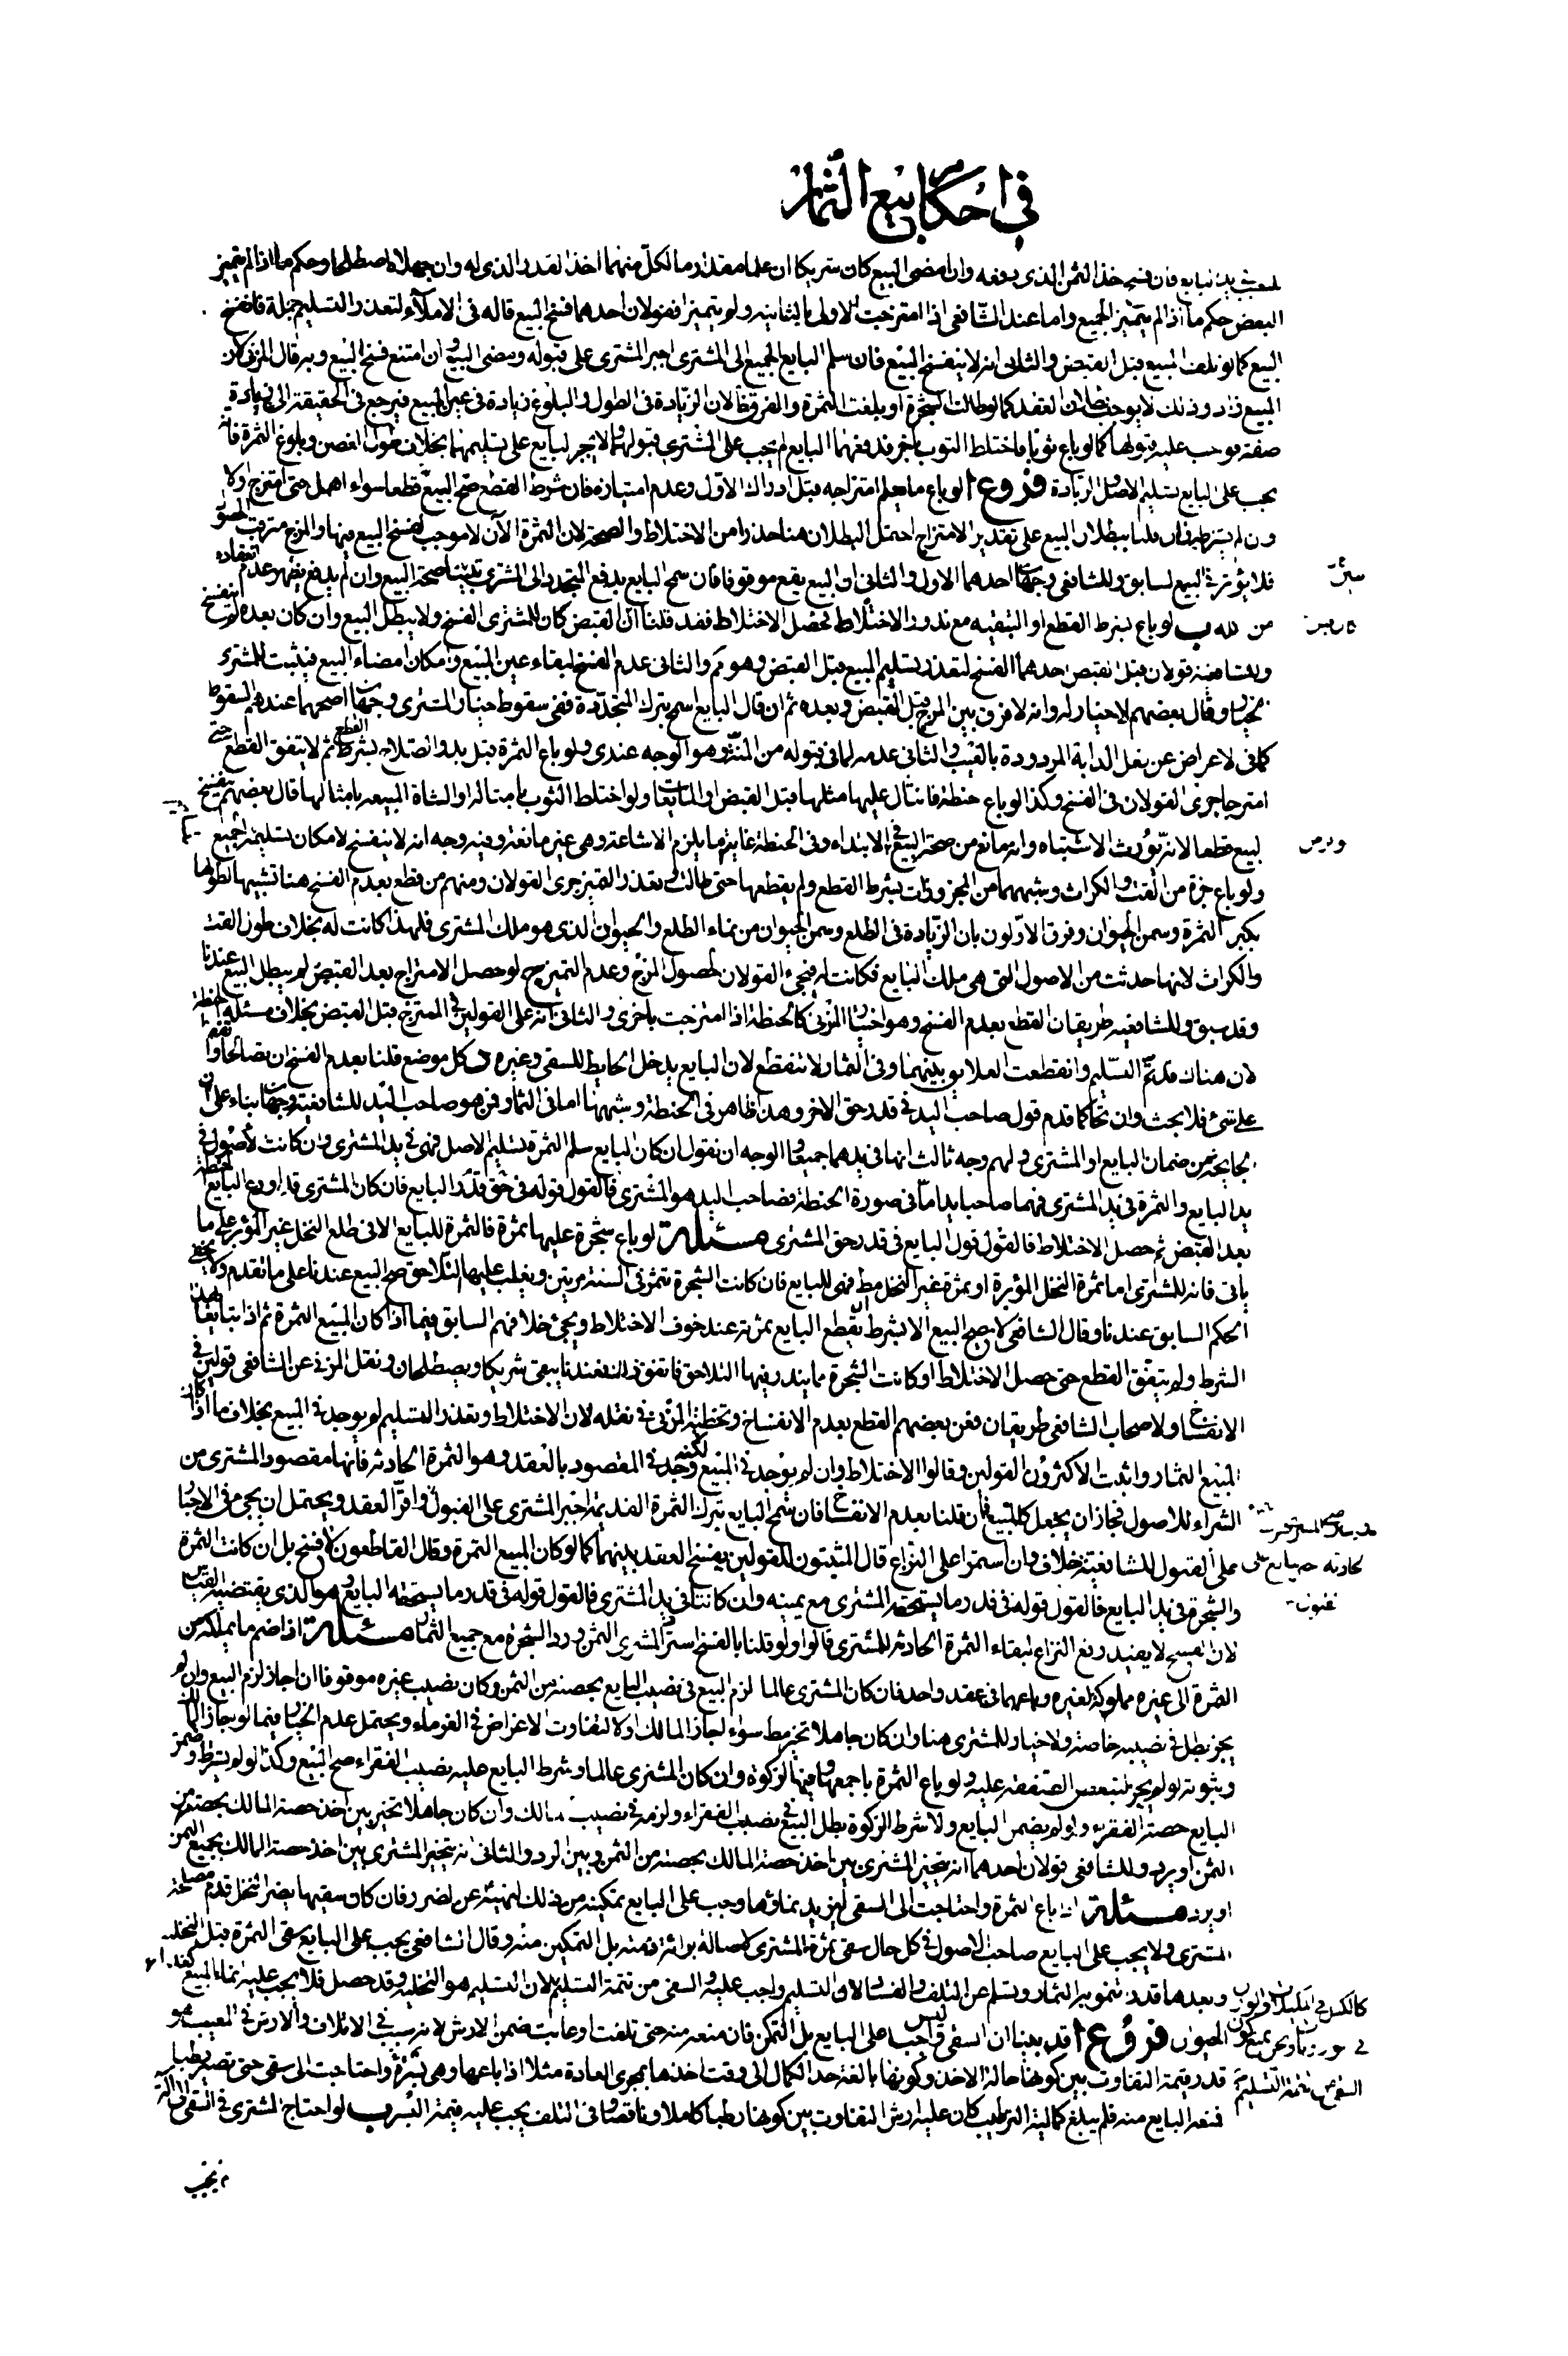 في احكام بيع الثمار
فان فسخ خذ الثمن الذى دفعه وان امضى البيع كان شريكا ان علما مقدار ما لكل منهما اخذ القدر الذى له وان جهلاه اصطلحا وحكم ما اذا لم يتميز
البعض حكم ما اذا لم يتميز الجميع واما عند الشافعى اذا امتزجت الاولى بالثانية ولم يتميزا فقولان احدهما فسخ البيع قاله فى الاملاء لتعذر التسليم جملة فانفسخ
البيع كما لو تلف المبيع قبل القبض والثانى انه لا ينفسخ البيع فان سلم البايع الجميع الى المشترى اجبر المشترى على قبوله ومضى البيع وان امتنع فسخ البيع وبه قال المزنى لان
المبيع زاد وذلك لا يوجب بطلان العقد كما لو طالت الشجرة او بلغت الثمرة والفرق ان الزيادة فى الطول والبلوغ زيادة فى عين المبيع فيرجع فى الحقيقة الى زيادة
صفة فوجب عليه قبولها كما لو باع ثوبا فاختلط الثوب بآخر فدفعهما البايع لم يجب على المشترى قبولهما ولا يجبر البايع على تسليمهما بخلاف طول الغصن وبلوغ الثمرة فانه
يجب على البايع تسليم الاصل والزيادة فروع ا لو باع ما يعلم امتزاجه قبل ادراك الاول وعدم امتيازه فان شرط القطع صح البيع قطعا سواء اهمل حتى امتزج او لا
وان لم يشترط فان قلنا ببطلان البيع على تقدير الامتزاج احتمل البطلان هنا حذرا من الاختلاط والصحة لان الثمرة الآن لا موجب لفسخ البيع فيها والمزج مترقب الحصول
فلا يؤثر فى البيع السابق وللشافعى وجهان احدهما الاول والثانى ان البيع يقع موقوفا فان سمح البايع بدفع المتجدد الى المشترى تبينا صحة البيع وان لم يدفع يظهر عدم انعقاده
من اصله ب لو باع بشرط القطع او التبقية مع ندور الاختلاط فحصل الاختلاط فقد قلنا ان القبض كان للمشترى الفسخ ولا يبطل البيع وان كان بعده لم ينفسخ
وللشافعية قولان قبل القبض احدهما الفسخ لتعذر تسليم المبيع قبل القبض وهو مم والثانى عدم الفسخ لبقاء عين المبيع وامكان امضاء البيع فيثبت للمشترى
الخيار وقال بعضهم لا خيار له وانه لا فرق بين المزج قبل القبض وبعده ثم ان قال البايع اسمح بترك المتجددة ففى سقوط خيار المشترى وجهان اصحهما عندهم السقوط
كما فى الاعراض عن نعل الدابة المردودة بالعيب والثانى عدمه لما فى قبوله من المنة وهو الوجه عندى ولو باع الثمرة قبل بدو الصلاح بشرط القطع ثم لا يتفق القطع حتى
امتزجا جرى القولان فى الفسخ وكذا لو باع حنطة فانثال عليها مثلها قبل القبض او المايعات ولو اختلط الثوب بامثاله او الشاة المبيعة بامثالها قال بعضهم ينفسخ
البيع قطعا لانه يورث الاشتباه وانه مانع من صحة البيع فى الابتداء وفى الحنطة غاية ما يلزم الاشاعة وهى غير مانعة وفيه وجه انه لا ينفسخ لامكان تسليمه الجميع
ولو باع جزة من القت والكراث وشبههما من المجزوزات بشرط القطع ولم يقطعها حتى طالت وتعذر التمييز جرى القولان ومنهم من قطع بعدم الفسخ هنا تشبيها لطولها
بكبر الثمرة وسمن الحيوان وفرق الاولون بان الزيادة فى الطلع وسمن الحيوان من نماء الطلع والحيوان الذى هو ملك المشترى فلهذا كانت له بخلاف طول القت
والكراث لانها حدثت من الاصول التى هى ملك البايع فكانت له فيجىء القولان لحصول المزج وعدم التميز ج لو حصل الامتزاج بعد القبض لم يبطل البيع عندنا
وقد سبق وللشافعية طريقان القطع بعدم الفسخ وهو اختيار المزنى كالحنطة اذا امتزجت باخرى والثانى انه على القولين فى الممتزج قبل القبض بخلاف مسئلة الحنطة
لان هناك قد تم التسليم وانقطعت العلايق بينهما وفى الثمار لا تنقطع لان البايع يدخل الحايط للسقى وغيره وكل موضع قلنا بعدم الفسخ ان تصالحا واتفقا
على شىء فلا بحث وان تحاكما قدم قول صاحب اليد فى قدر حق الآخر وهذا ظاهر فى الحنطة وشبهها اما فى الثمار ومن هو صاحب اليد للشافعية وجهان بناء على ان
الجايحة من ضمان البايع او المشترى ولهم وجه ثالث انها فى يدهما جميعا والوجه ان نقول ان كان البايع سلم الثمرة بتسليم الاصل فهى فى يد المشترى وان كانت الاصول فى
يد البايع والثمرة فى يد المشترى فهما صاحبا يد اما فى صورة الحنطة فصاحب اليد هو المشترى فالقول قوله فى حق قدر البايع فان كان المشترى قد اودع البايع الحنطة
بعد القبض ثم حصل الاختلاط فالقول قول البايع فى قدر حق المشترى مسئلة لو باع شجرة عليها ثمرة فالثمرة للبايع الا فى طلع النخل غير المؤبر على ما
ياتى فانه للمشترى اما ثمرة النخل المؤبرة او ثمرة غير النخل مط فهى للبايع فان كانت الشجرة تثمر فى السنة مرتين ويغلب عليها التلاحق صح البيع عندنا على ما تقدم ولا يخفى
الحكم السابق عندنا وقال الشافعى لا يصح البيع الا بشرط ان يقطع البايع ثمرته عند خوف الاختلاط ويجىء خلافهم السابق فيما اذا كان المبيع الثمرة ثم اذا تبايعا بهذا
الشرط ولم يتفق القطع حتى حصل الاختلاط او كانت الشجرة مما يندر فيها التلاحق فاتفق ذلك فعندنا يبقى شريكا ويصطلحان ونقل المزنى عن الشافعى قولين فى
الانفساخ ولاصحاب الشافعى طريقان فعن بعضهم القطع بعدم الانفساخ وتخطئة المزنى فى نقله لان الاختلاط وتعذر التسليم لم يوجد فى المبيع بخلاف ما اذا كان
المبيع الثمار واثبت الاكثرون القولين وقالوا الاختلاط وان لم يوجد فى المبيع لكنه وجد فى المقصود بالعقد وهو الثمرة الحادثة فانها مقصود المشترى من
الشراء للاصول فجاز ان يجعل كالمبيع فان قلنا بعدم الانفساخ فان سمح البايع بترك الثمرة القديمة اجبر المشترى على القبول واقر العقد ويحتمل ان يجىء فى الاجبار
على القبول للشافعية خلاف وان استمرا على النزاع قال المثبتون للقولين يفسخ العقد بينهما كما لو كان المبيع الثمرة وقال القاطعون لا فسخ بل ان كانت الثمرة
والشجرة فى يد البايع فالقول قوله فى قدر ما يستحقه المشترى مع يمينه وان كانتا فى يد المشترى فالقول قوله فى قدر ما يستحقه البايع وهو الذى يقتضيه القياس
لان الفسخ لا يفيد رفع النزاع لبقاء الثمرة الحادثة للمشترى قالوا ولو قلنا بالفسخ استرد المشترى الثمن ورد الشجرة مع جميع الثمار مسئلة اذا ضم ما يملكه من
الثمرة الى غيره مملوكة لغيره وباعهما فى عقد واحد فان كان المشترى عالما لزم البيع فى نصيب البايع بحصته من الثمن وكان نصيب غيره موقوفا ان اجاز لزم البيع وان لم
يجز بطل فى نصيبه خاصة ولا خيار للمشترى هنا وان كان جاهلا تخير مط سواء اجاز المالك او لا لتفاوت الاغراض فى الغرماء ويحتمل عدم الخيار فيما لو اجاز المالك
وثبوته لو لم يجز لتبعض الصفقة عليه ولو باع الثمرة باجمعها وفيها الزكوة وان كان المشترى عالما وشرط البايع عليه نصيب الفقراء صح البيع وكذا لو لم يشترط وضمن
البايع حصة الفقراء ولو لم يضمن البايع ولا شرط الزكوة بطل البيع فى نصيب الفقراء ولزمه فى نصيب المالك وان كان جاهلا تخير بين اخذ حصة المالك بحصته من
الثمن او يرد وللشافعى قولان احدهما انه يتخير المشترى بين اخذ حصة المالك بحصته من الثمن وبين الرد والثانى انه يتخير المشترى بين اخذ حصة المالك بجميع الثمن
او يرد مسئلة اذا باع الثمرة واحتاجت الى السقى ليزيد نماؤها وجب على البايع تمكينه من ذلك لنهيه عن الضرر فان كان سقيها يضر النخل قدم مصلحة
المشترى ولا يجب على البايع صاحب الاصول فى كل حال سقى ثمرة المشترى لاصالة برائة ذمته بل التمكين منه وقال الشافعى يجب على البايع سقى الثمرة قبل التخلية
وبعدها قدر تنمو به الثمار وتسلم عن التلف والفساد لان التسليم واجب عليه والسقى من تتمة التسليم لان التسليم هو التخلية وقد حصل فلا يجب عليه نماء المبيع
فروع ا قد بينا ان السقى ليس واجبا على البايع بل التمكن فان منعه منه حتى تلفت او عابت ضمن الارش لانه سبب فى الاتلاف والارش فى المعيب هو
قدر قيمة التفاوت بين كونها حالة الاخذ وكونها بالغة حد الكمال الى وقت اخذها بمجرى العادة مثلا اذا باعها وهى بسر واحتاجت الى سقى حتى تصير رطبا
فمنعه البايع منه فلم يبلغ كمالية الترطيب كان عليه ارش التفاوت بين كونها رطبا كاملا وناقصا وفى التلف يجب عليه قيمة البسر ب لو احتاج المشترى فى السقى الى آلة